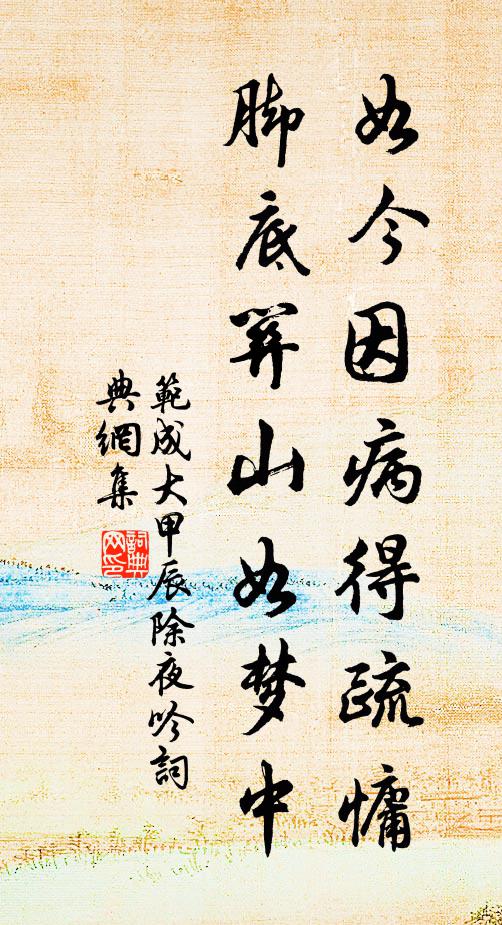 如今因病得疏慵
脚底关山如梦中
範成大甲辰除夜吟詞
典網集
詞典
网印